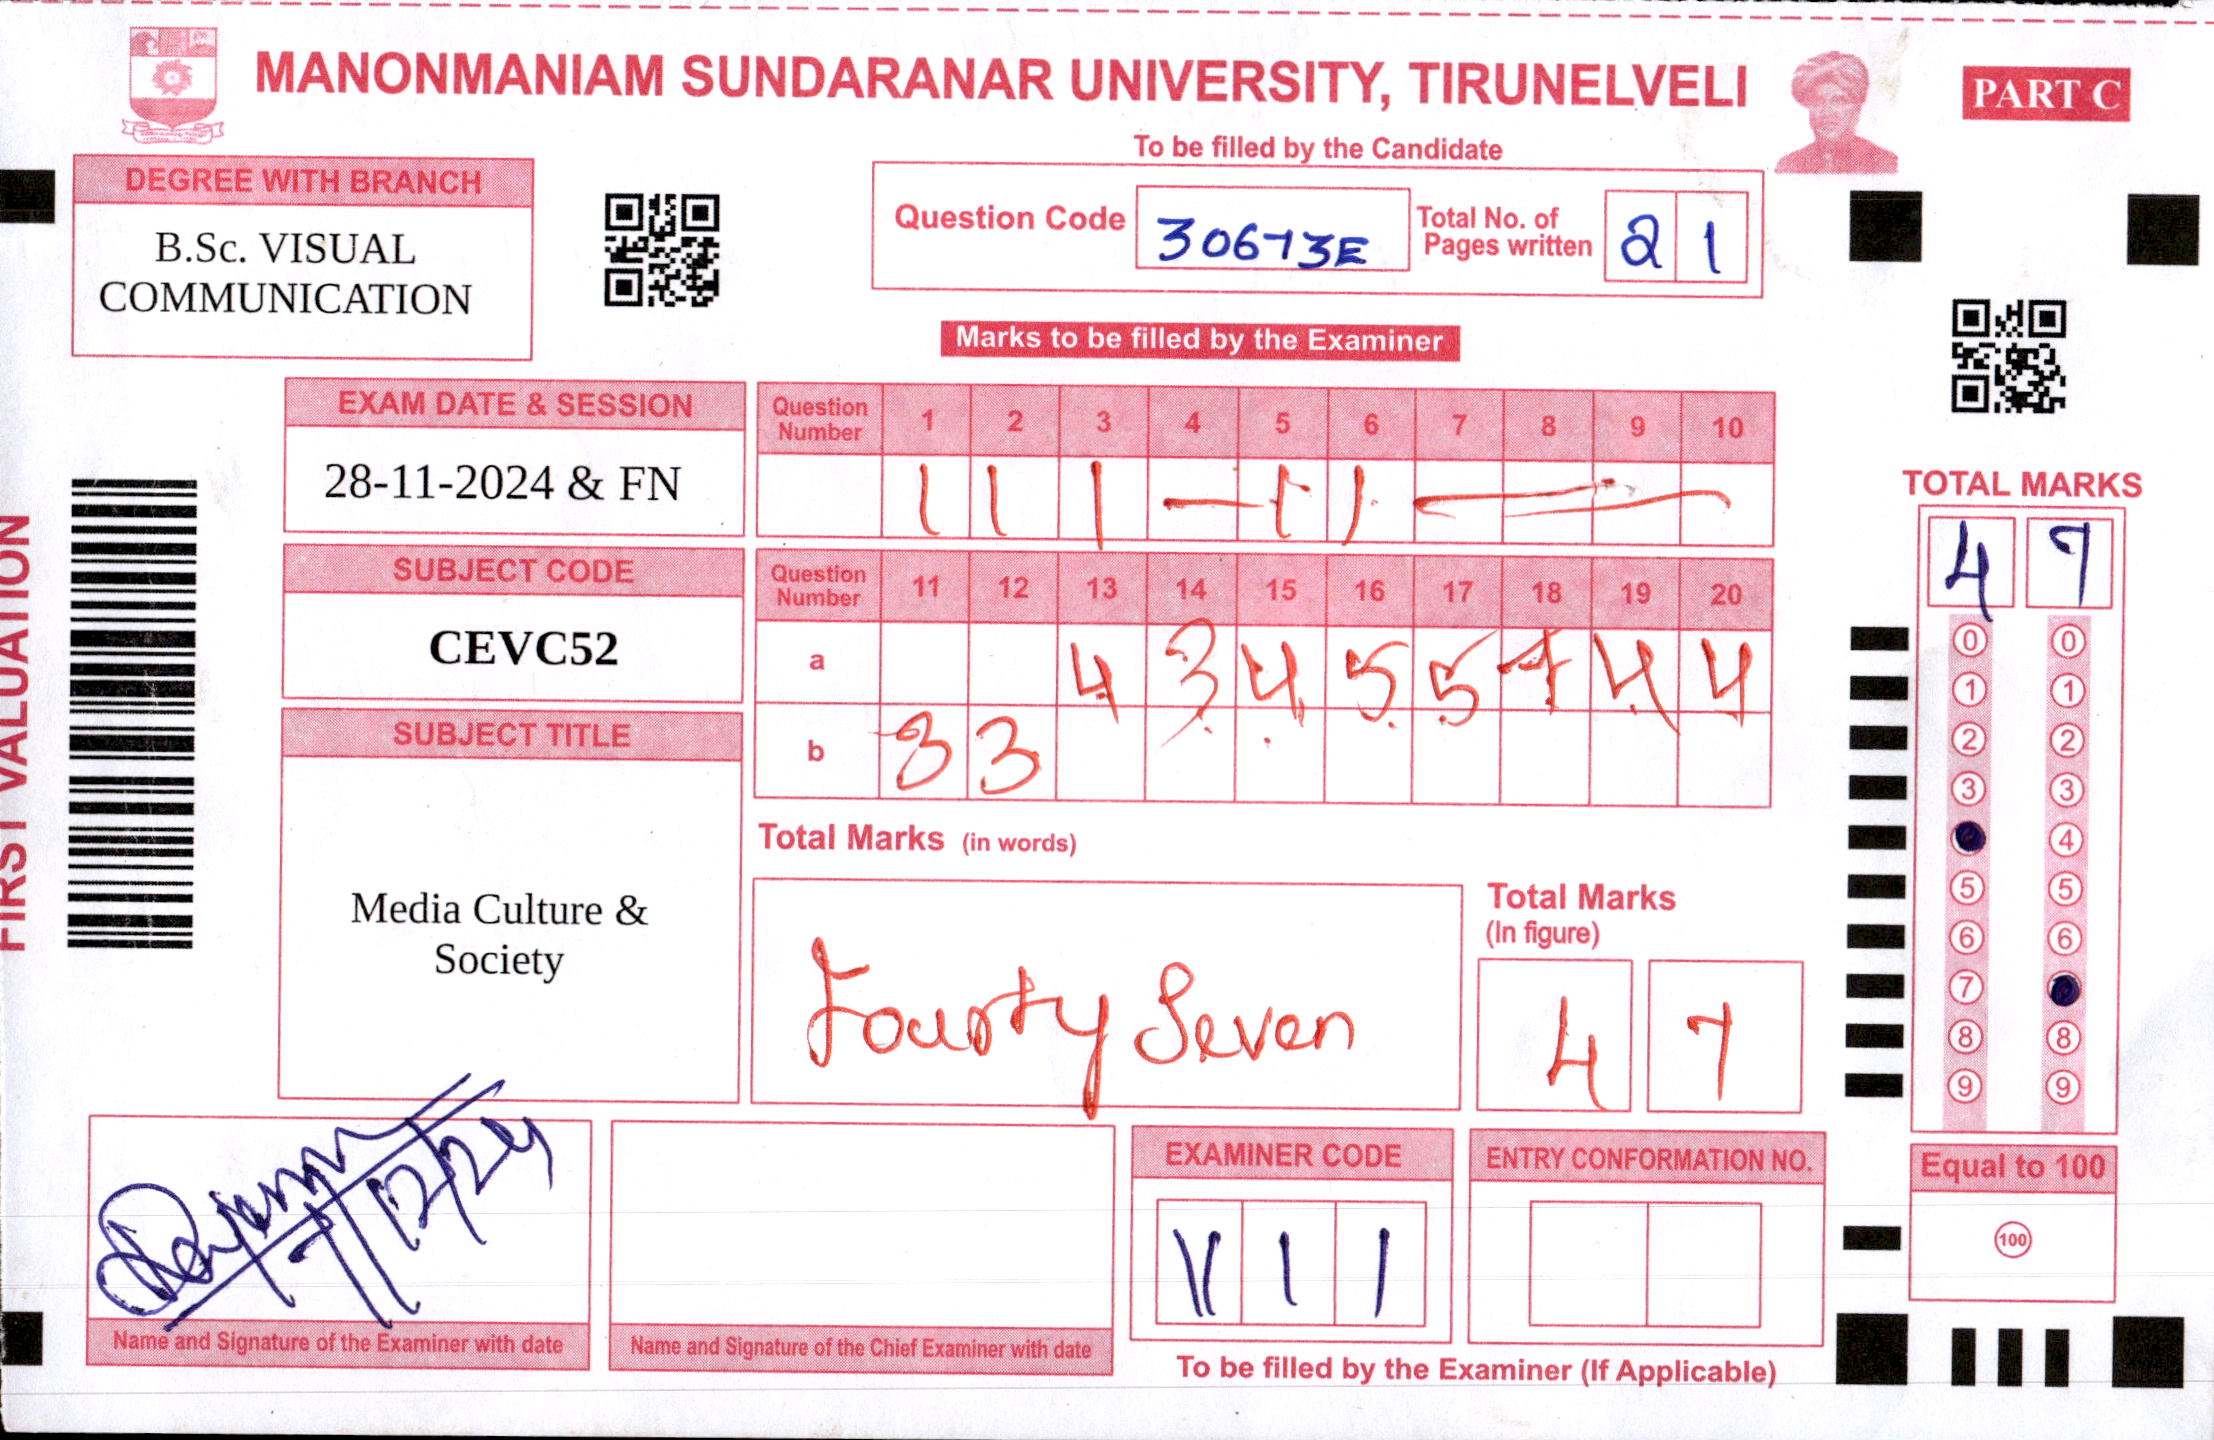 MANONMANIAM SUNDARANAR UNIVERSITY, TIRUNELVELI
PART C
To be filled by the Candidate
DEGREE WITH BRANCH
B.Sc. VISUAL
COMMUNICATION
Question Code 30673E
Total No. of
Pages written 2 1
Marks to be filled by the Examiner
EXAM DATE & SESSION
28-11-2024 & FN
Question
Number 1 2 3 4 5 6 7 8 9 10
1 1 1 — 1 1 —
SUBJECT CODE
CEVC52
Question
Number 11 12 13 14 15 16 17 18 19 20
a 4 3 4 5 5 7 4 4
b 3 3
SUBJECT TITLE
Media Culture &
Society
Total Marks (in words)
Fourty Seven
Total Marks
(In figure)
4 7
TOTAL MARKS
4 7
0 0
1 1
2 2
3 3
4
5 5
6 6
7
8 8
9 9
FIRST VALUATION
7/12/24
Name and Signature of the Examiner with date
Name and Signature of the Chief Examiner with date
EXAMINER CODE
V I I
ENTRY CONFORMATION NO.
To be filled by the Examiner (If Applicable)
Equal to 100
100